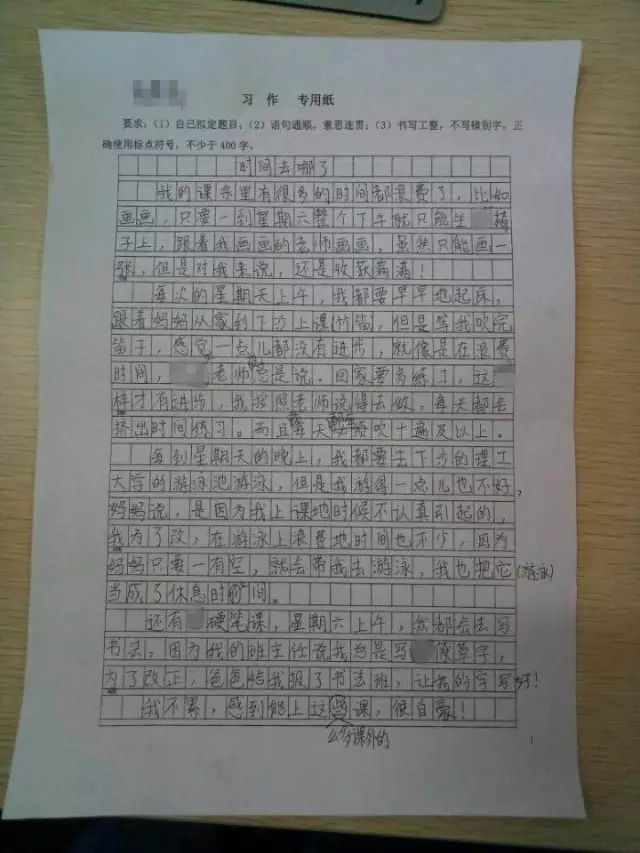 习 作 专用纸
要求：（1）自己拟定题目；（2）语句通顺，意思连贯；（3）书写工整，不写错别字，正
确使用标点符号，不少于400字。
时间去哪了
我的课余里有很多的时间都浪费了，比如
画画，只要一到星期六整个下午就只能坐椅
子上，跟着我画画的老师画画，虽然只能画一
张，但是对我来说，还是收获满满！
每次的星期天上午，我都要早早地起床，
跟着妈妈从家到下沙上课(竹笛，但是等我吹完
笛子，感觉一点儿都没有进步，就像是在浪费
时间，老师总是说，回家要多练习，这
样才有进步，我按照老师说得去做，每天都会
挤出时间练习。而且每天吹十遍及以上。
每到星期天的晚上，我都要去下沙的理工
大学的游泳池游泳，但是我游得一点儿也不好，
妈妈说，是因为我上课地时候不认真引起的，
我为了改，在游泳上浪费地时间也不少，因为
妈妈只要一有空，就会带我去游泳，我也把它(游泳)
当成了休息时间。
还有硬笔课，星期六上午，我都会去写
书法，因为我的班主任说我总是写潦草字，
为了改正，爸爸给我报了书法班，让我的字写好！
我不累，感到能上这些课，很自豪！
课外的